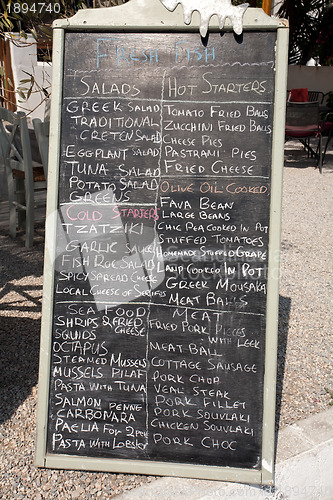 FRESH FISH
SALADS
GREEK SALAD
TRADITIONAL
CRETEN SALAD
EGGPLANT SALAD
TUNA SALAD
POTATO SALAD
GREENS
COLD STARTERS
TZATZIKI
GARLIC SALAD
FISH ROE SALAD
SPICY SPREAD CHEESE
LOCAL CHEESE OF SERIFOS
SEA FOOD
SHRIPS & FRIED CHEESE
SQUIDS
OCTAPUS
STEAMED MUSSELS
MUSSELS PILAF
PASTA WITH TUNA
SALMON PENNE
CARBOMARA
PAELIA VEN
PASTA WITH LOBSTER
HOT STARTERS
TOMATO FRIED BALLS
ZUCCHINI FRIED BALLS
CHEESE PIES
PASTRAMI PIES
FRIED CHEESE
OLIVE OIL COOKED
FAVA BEAN
LARGE BEANS
CHIC PEA COOKED IN POT
STUFFED TOMATOS
HOMEMADE STUFFED GRAPE
LAMP COOKED IN POT
GREEK MOUSAKA
MEAT BALLS
MEAT
FRIED PORK PIECES WITH LEEK
MEAT BALL
COTTAGE SAUSAGE
PORK CHOP
VEAL STEAK
PORK FILLET
PORK SOUVLAKI
CHICKEN SOUVLAKI
PORK CHOC
123RF
21894740